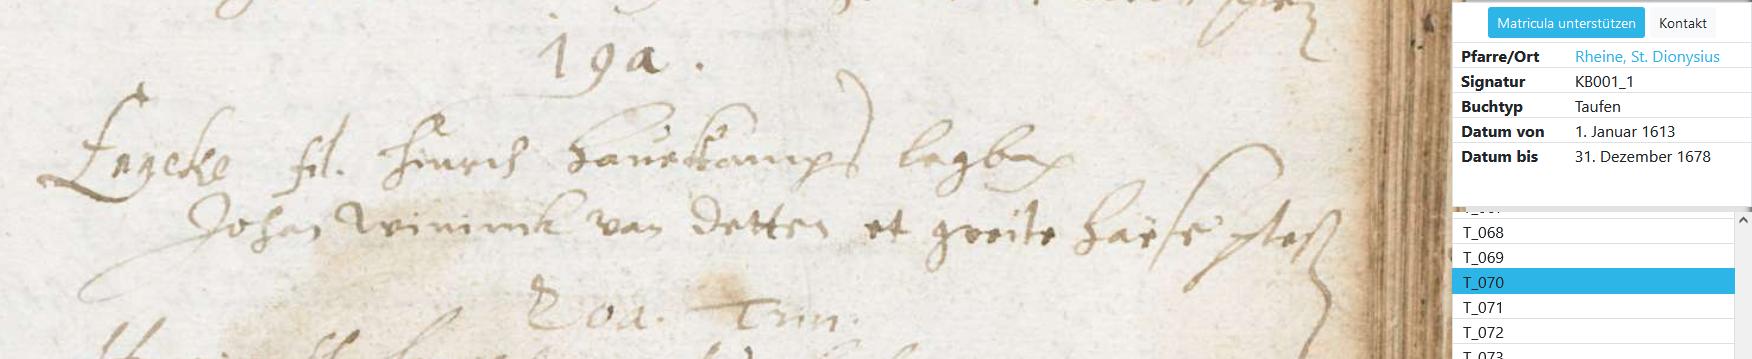 19a.
Engeke fil. Hinrich Hauekamps legbar
Johan Wininck van Detten et greite
20a. Trin.
Matricula unterstützen Kontakt
Pfarre/Ort Rheine, St. Dionysius
Signatur KB001_1
Buchtyp Taufen
Datum von 1. Januar 1613
Datum bis 31. Dezember 1678
T_068
T_069
T_070
T_071
T_072
T_073